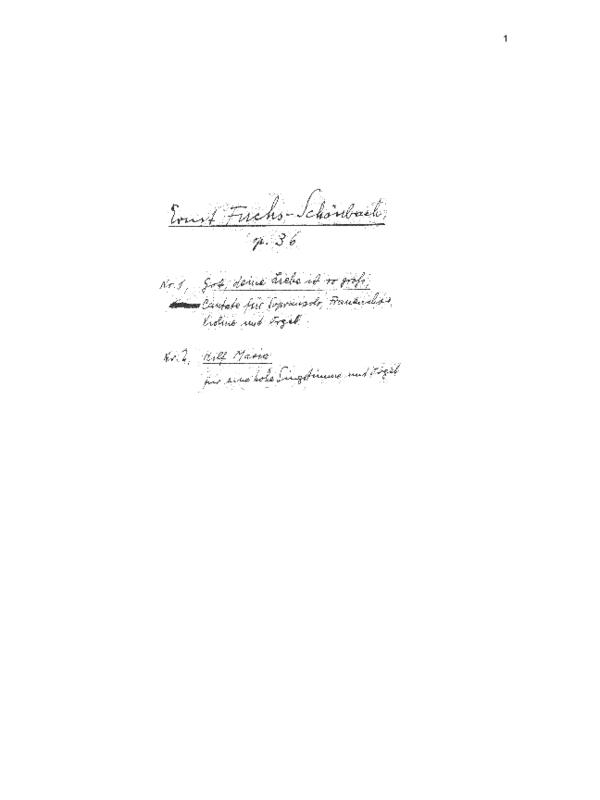 1
Ernst Fuchs-Schönbach,
op. 36
Nr. 1, Gott, deine Liebe ist so groß,
Cantate für Sopransolo, Frauenchor,
Violine und Orgel.
Nr. 2, Hilf Maria
für eine hohe Singstimme und Orgel